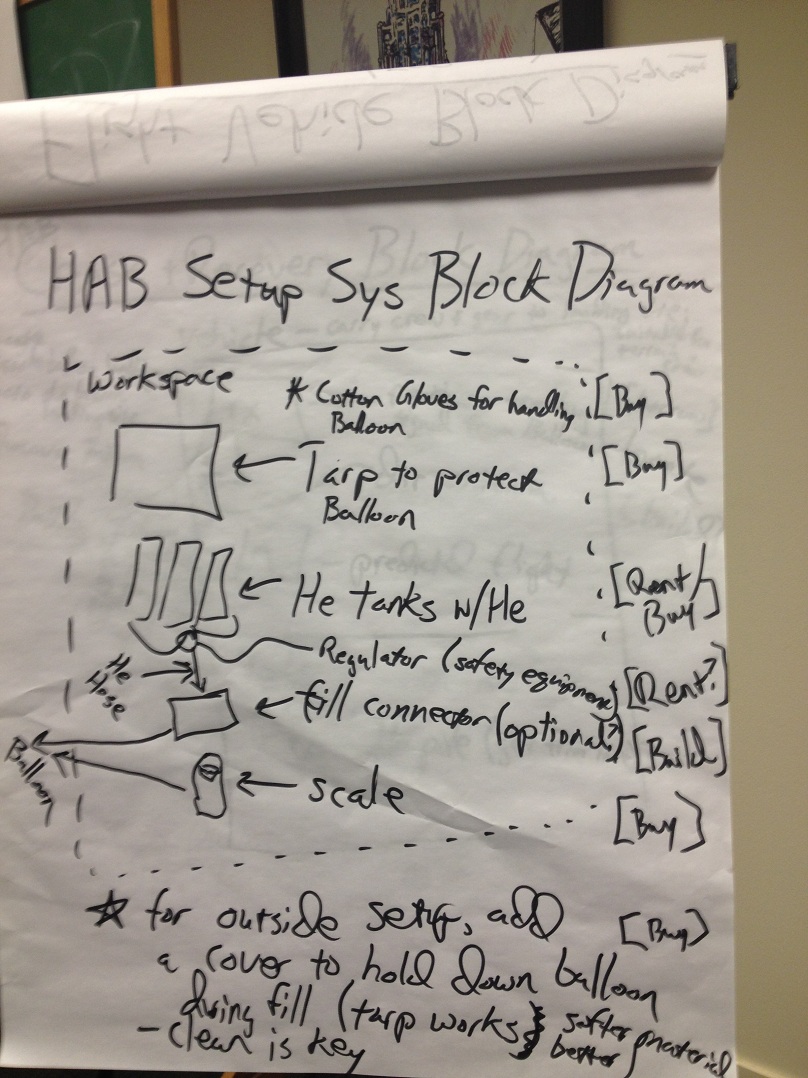 Flight Vehicle Block Diagram
HAB Setup Sys Block Diagram
Workspace
* Cotton Gloves for handling [Buy]
Balloon
Tarp to protect [Buy]
Balloon
He tanks w/He [Rent/
Buy]
Regulator (safety equipment) [Rent?]
He
Hose
fill connector (optional?) [Build]
Balloon
scale [Buy]
☆ for outside setup, add [Buy]
a cover to hold down balloon
during fill (tarp works} softer material
better
- clean is key